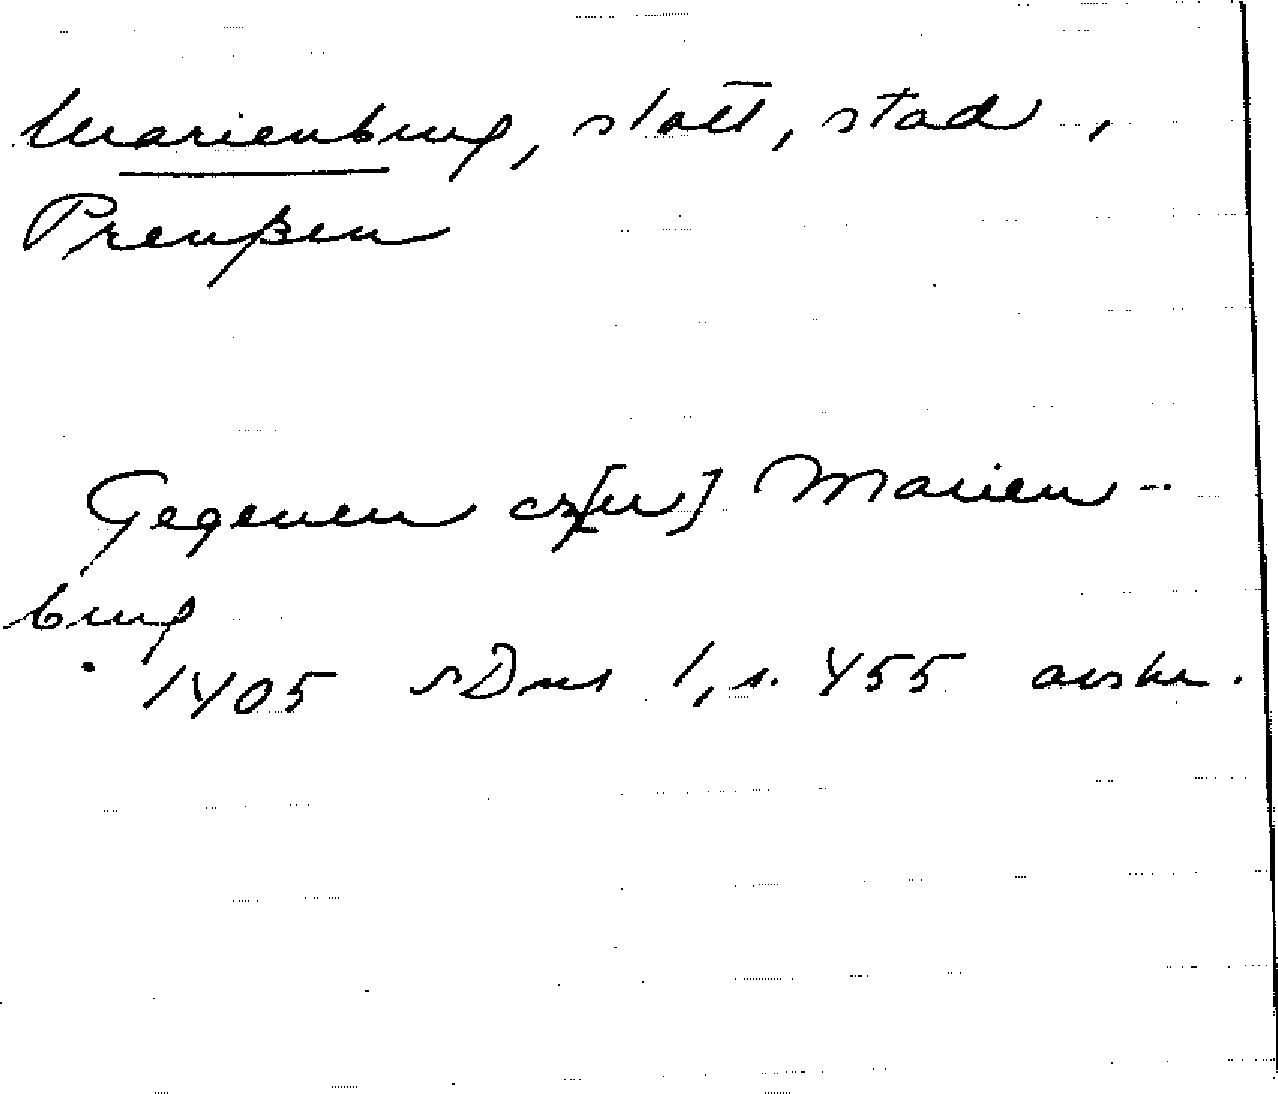 Marienburg, slott, stad,
Preußen
Gegeuen cz[u] Marien-
burg
1405 SDns 1, s. 455 avskr.